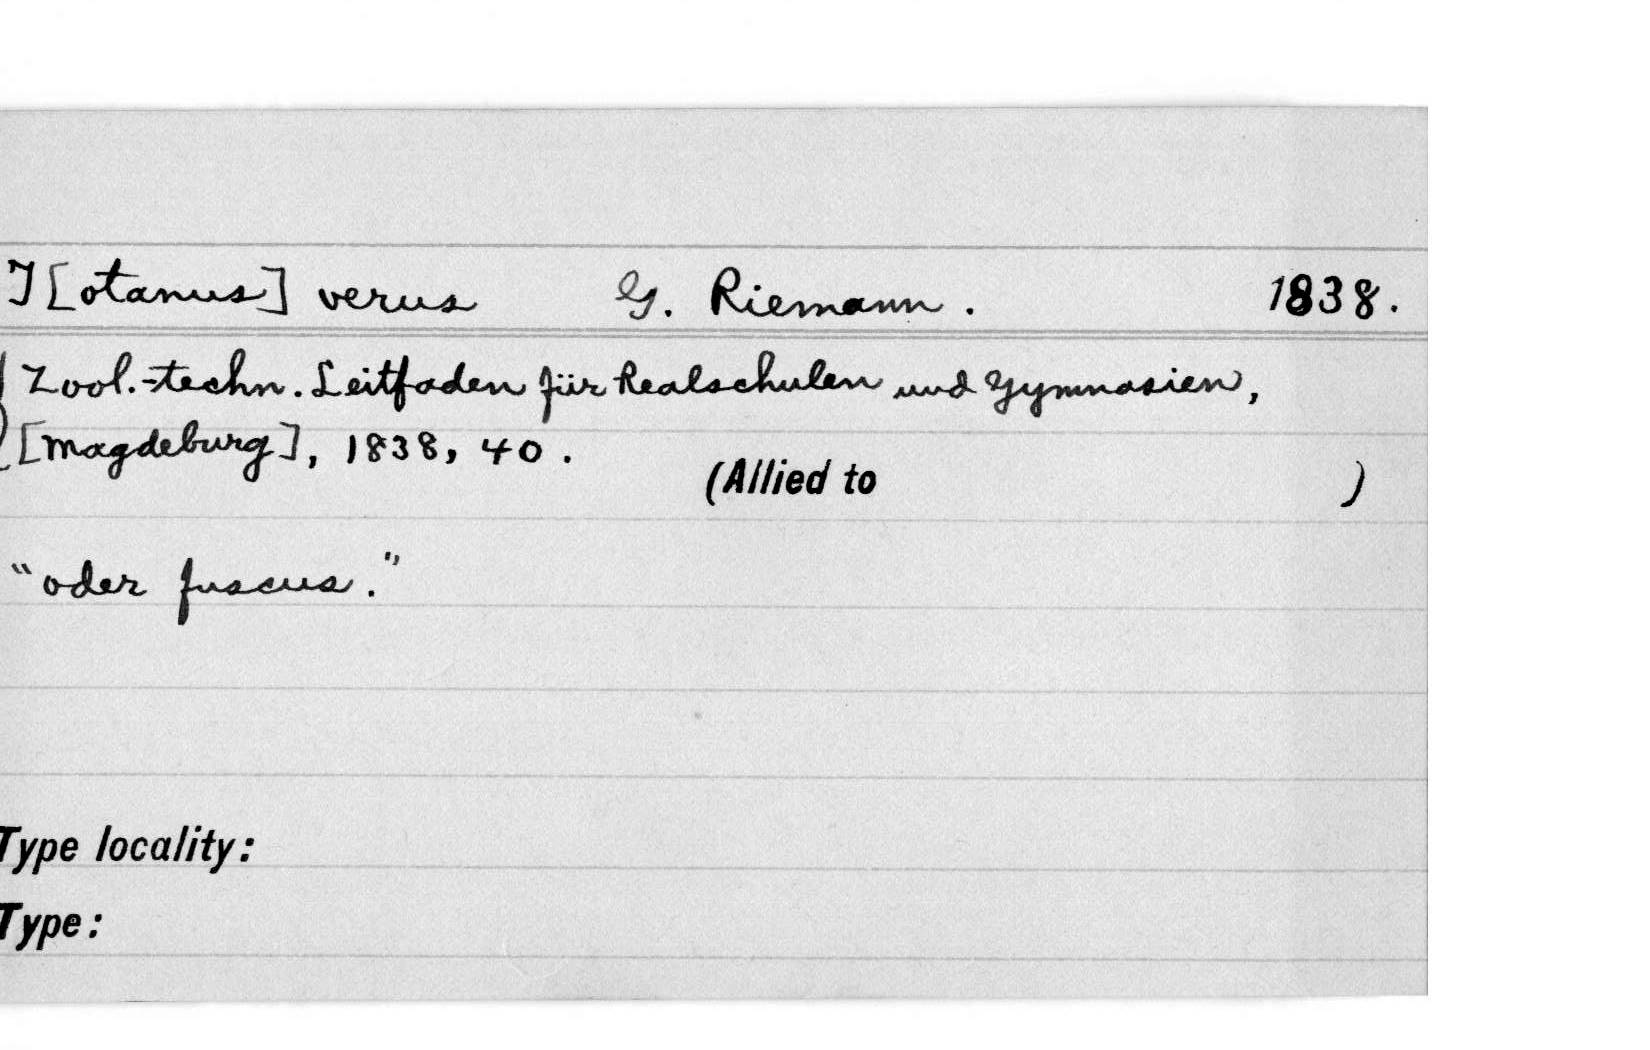 T[otanus] verus G. Riemann. 1838.
Zool.-techn. Leitfaden für Realschulen und Gymnasien,
[Magdeburg], 1838, 40.
(Allied to )
"oder fuscus."
Type locality:
Type: